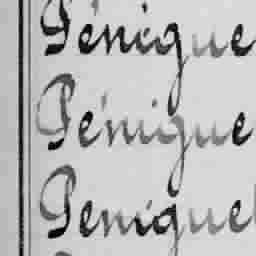 Pénigue
Pénigue
Peniguel